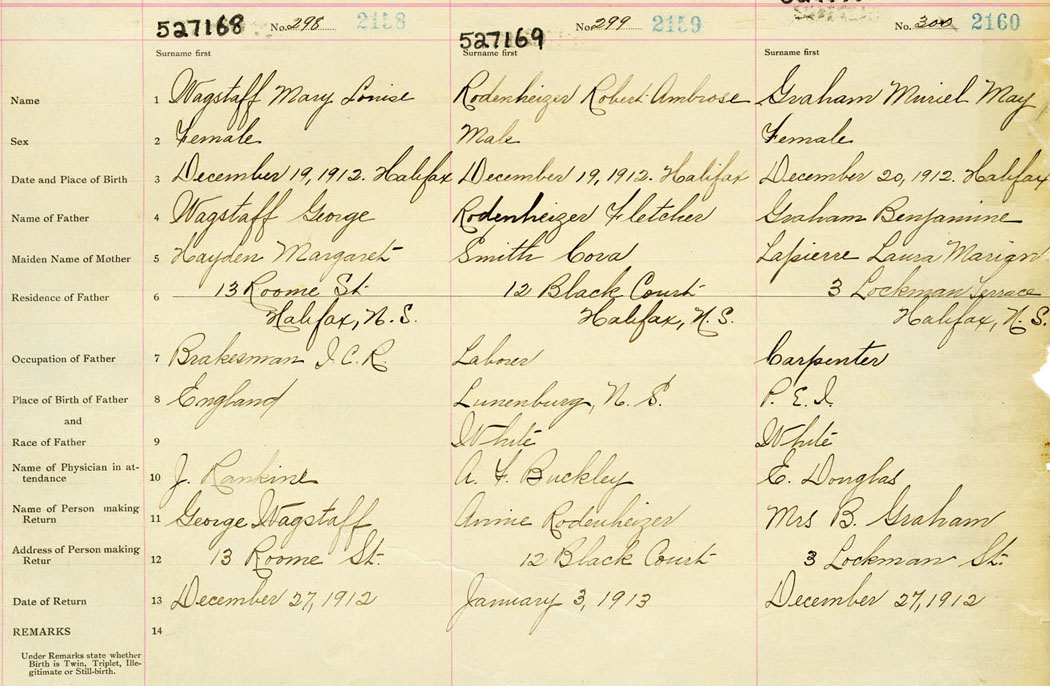 527168 No. 298 2158 527169 No. 299 2159 No. 300 2160
Surname first Surname first Surname first
Name 1 Wagstaff Mary Louise Rodenheizer Robert Ambrose Graham Muriel May
Sex 2 Female Male Female
Date and Place of Birth 3 December 19, 1912. Halifax December 19, 1912. Halifax December 20, 1912. Halifax
Name of Father 4 Wagstaff George Rodenheizer Fletcher Graham Benjamine
Maiden Name of Mother 5 Hayden Margaret Smith Cora Lapierre Laura
Residence of Father 6 13 Roome St. 12 Black Court 3 Lockman Terrace
Halifax, N.S. Halifax, N.S. Halifax, N.S.
Occupation of Father 7 Brakesman I.C.R. Laborer Carpenter
Place of Birth of Father 8 England Lunenburg, N.S. P.E.I.
and
Race of Father 9 White White
Name of Physician in at-
tendance 10 J. Rankine A. F. Buckley E. Douglas
Name of Person making
Return 11 George Wagstaff Annie Rodenheizer Mrs B. Graham
Address of Person making
Retur 12 13 Roome St. 12 Black Court 3 Lockman St.
Date of Return 13 December 27, 1912 January 3, 1913 December 27, 1912
REMARKS 14
Under Remarks state whether
Birth is Twin, Triplet, Ille-
gitimate or Still-birth.